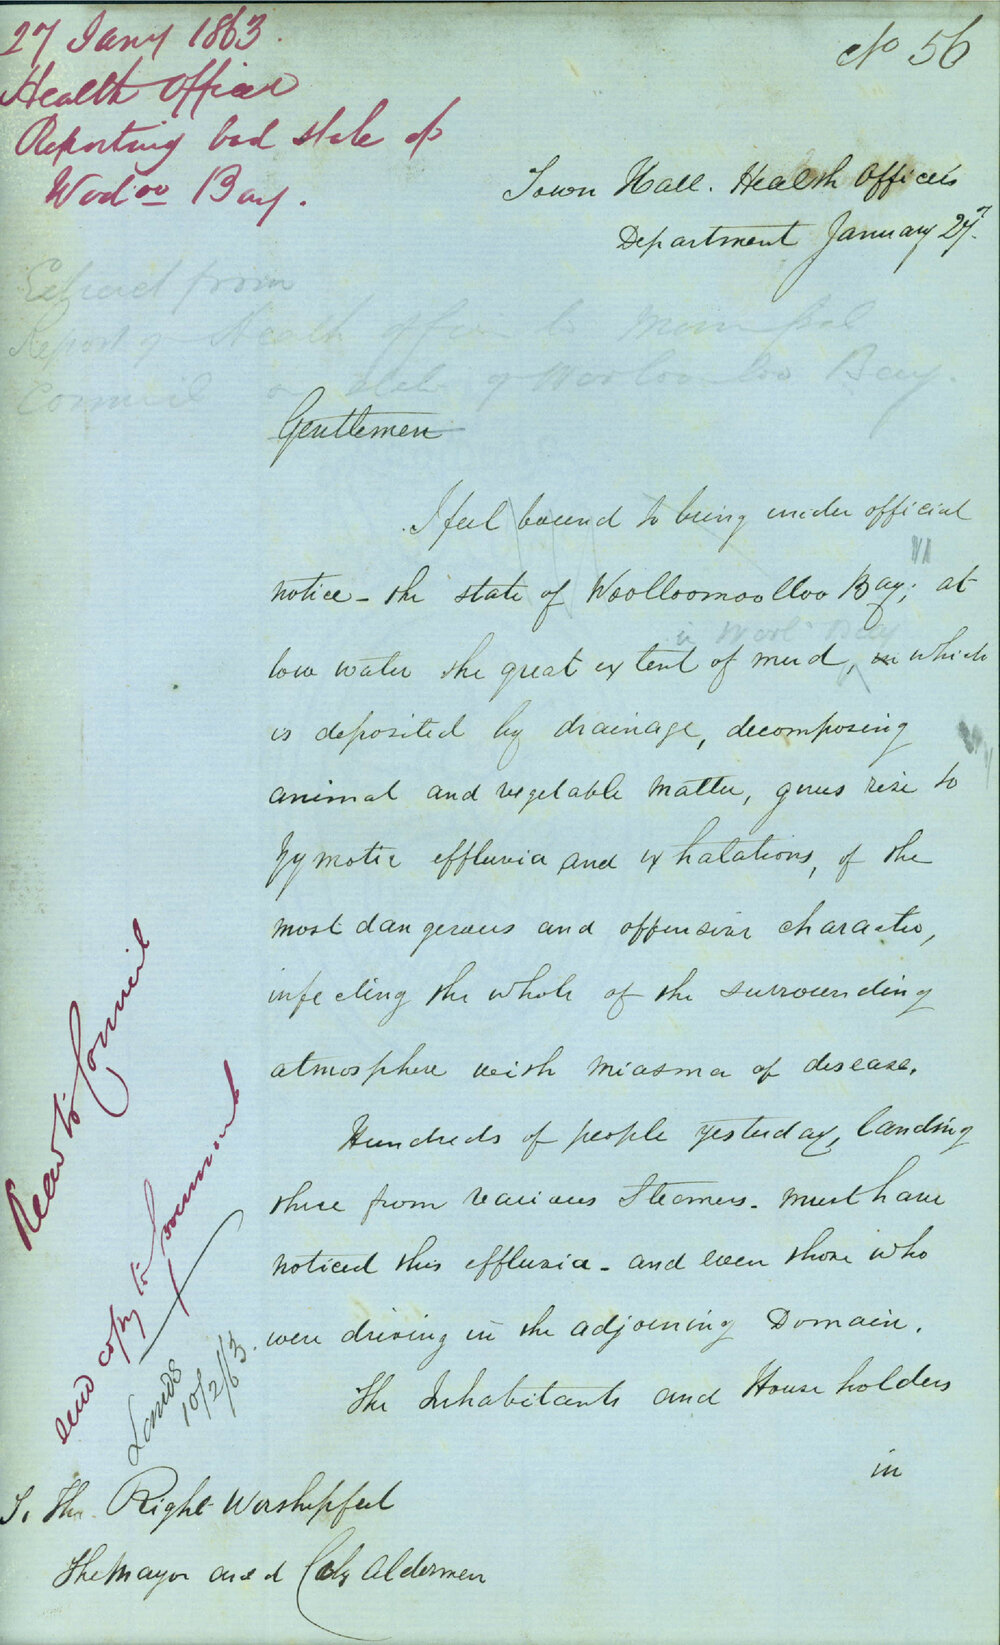 27 Jany 1863.
Health Officer
Reporting bad state of
Wooloo Bay.
No 56
Town Hall. Health Officers
Department January 27.
Extract from
Report of Health Officer to Municipal
Council on state of Woolloomooloo Bay.
Gentlemen
I feel bound to bring under official
notice - the state of Woolloomoolloo Bay; at
in Wool Bay
low water the great extent of mud, in which
is deposited by drainage, decomposing
animal and vegetable matter, gives rise to
Zymotic effluvia and exhalations, of the
most dangerous and offensive character,
infecting the whole of the surrounding
atmosphere with miasma of disease.
Hundreds of people yesterday, landing
there from various Steamers - must have
noticed this effluvia - and even those who
were driving in the adjoining Domain.
The Inhabitants and House holders
in
Read to Council
send copy to Govnment
Lands
10/2/63.
To The Right Worshipful
The Mayor and City Aldermen